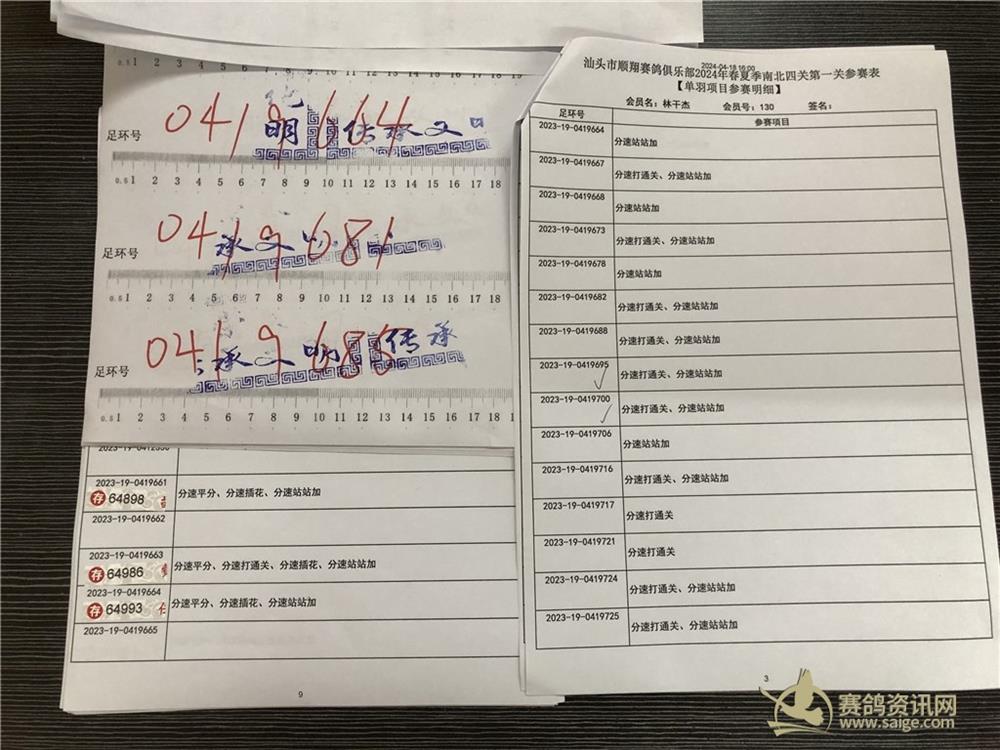 0.5 1 2 3 4 5 6 7 8 9 10 11 12 13 14 15 16 17 18
足环号 0419664
明 传承文
0.5 1 2 3 4 5 6 7 8 9 10 11 12 13 14 15 16 17 18
足环号 0419681
承文
0.5 1 2 3 4 5 6 7 8 9 10 11 12 13 14 15 16 17 18
足环号
承文明 传承
0.5 1 2 3 4 5 6 7 8 9 10 11 12 13 14 15 16 17 18
2023-19-0419661
存 64898
分速平分、分速插花、分速站站加
2023-19-0419662
2023-19-0419663
存 64986
分速平分、分速打通关、分速插花、分速站站加
2023-19-0419664
存 64993
分速平分、分速插花、分速站站加
2023-19-0419665
9
2024-04-18 16:00
汕头市顺翔赛鸽俱乐部2024年春夏季南北四关第一关参赛表
【单羽项目参赛明细】
会员名：林干杰 会员号：130 签名：
足环号 参赛项目
2023-19-0419664 分速站站加
2023-19-0419667 分速打通关、分速站站加
2023-19-0419668 分速站站加
2023-19-0419673 分速打通关、分速站站加
2023-19-0419678 分速站站加
2023-19-0419682 分速打通关、分速站站加
2023-19-0419688 分速打通关、分速站站加
2023-19-0419695 分速打通关、分速站站加
2023-19-0419700 分速打通关、分速站站加
2023-19-0419706 分速站站加
2023-19-0419716 分速打通关、分速站站加
2023-19-0419717 分速打通关
2023-19-0419721 分速打通关
2023-19-0419724 分速打通关、分速站站加
2023-19-0419725 分速打通关、分速站站加
3
赛鸽资讯网
www.saige.com